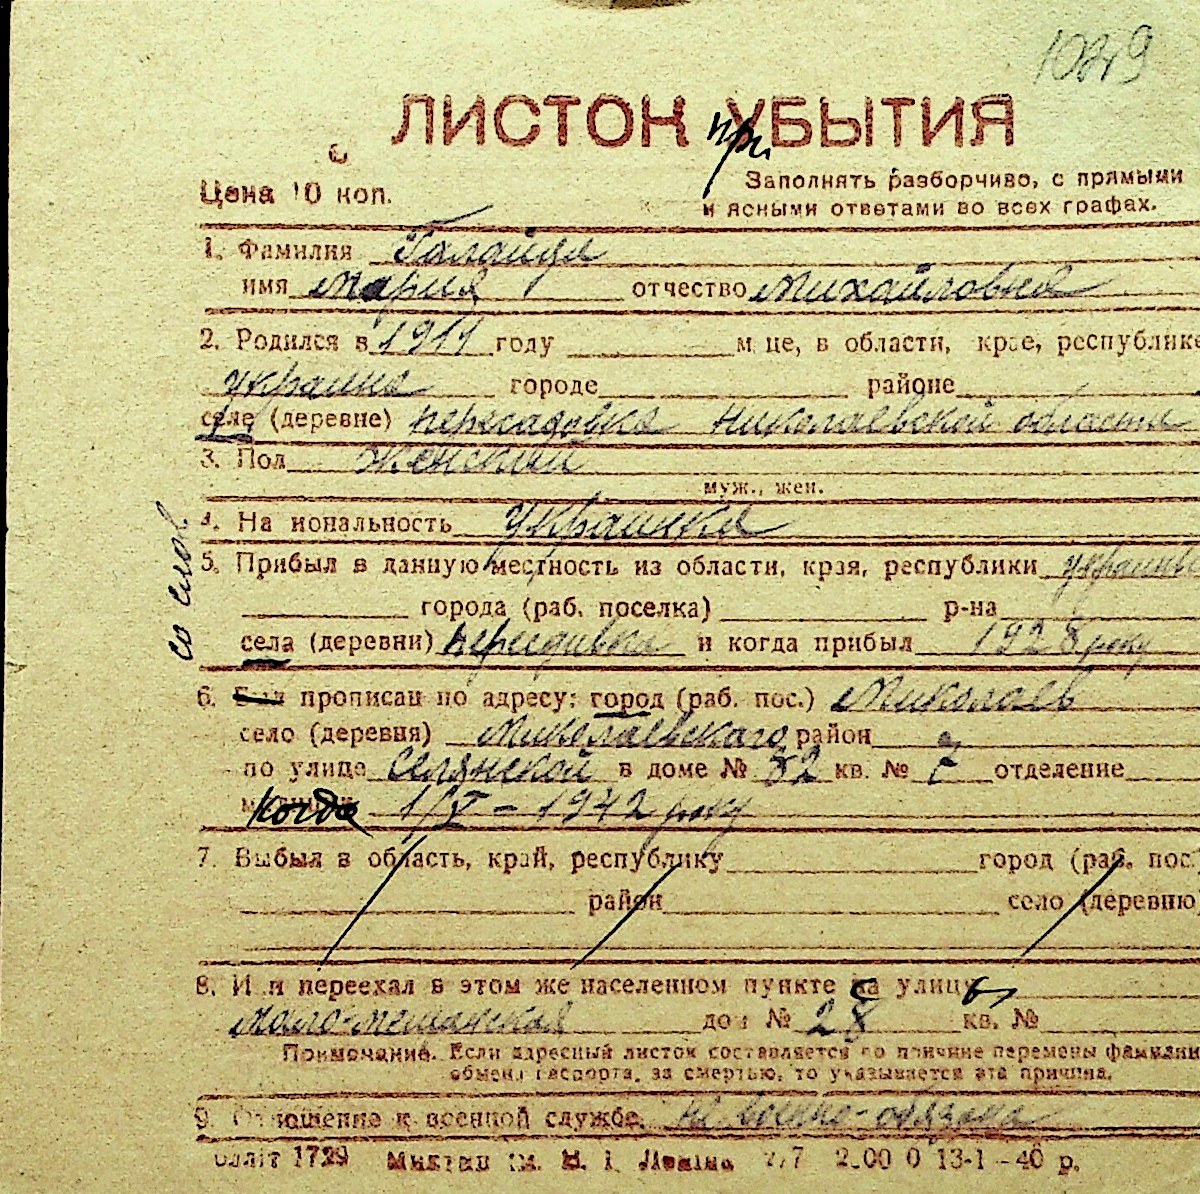 1029
ЛИСТОК УБЫТИЯ
при
Цена 10 коп.
Заполнять разборчиво, с прямыми
и ясными ответами во всех графах.
1. Фамилия Галайда
имя Мария отчество Михайловна
2. Родился в 1911 году м-це, в области, крае, республике
украина городе районе
селе (деревне) пересадовка Николаевской области
3. Пол женский
муж., жен.
4. Национальность украинка
со слов
5. Прибыл в данную местность из области, края, республики
города (раб. поселка) р-на
села (деревни) и когда прибыл 1928 року
6. Был прописан по адресу: город (раб. пос.) Миколаев
село (деревня) Миколаевского район
по улице Селянской в доме № 32 кв. № 7 отделение
когда 1/V - 1942 року
7. Выбыл в область, край, республику город (раб. пос.
район село (деревню
8. Или переехал в этом же населенном пункте на улицу
Мало-мещанская дом № 28 кв. №
Примечание. Если адресный листок составляется по причине перемены фамилии
обмена паспорта, за смертью, то указывается эта причина.
9. Отношение к военной службе. не военно-обязана
1729 Ленина 13-1-40 р.